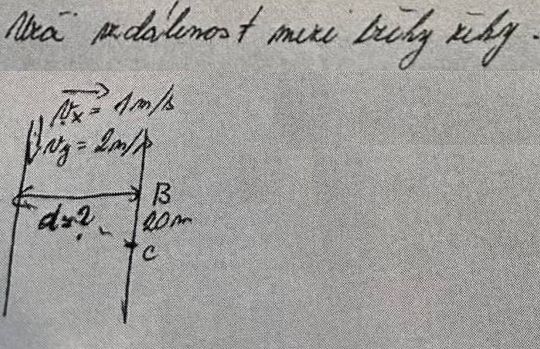 vzdálenost mezi břehy řeky.
vx = 1m/s
vy = 2m/s
B
d=?
20m
C